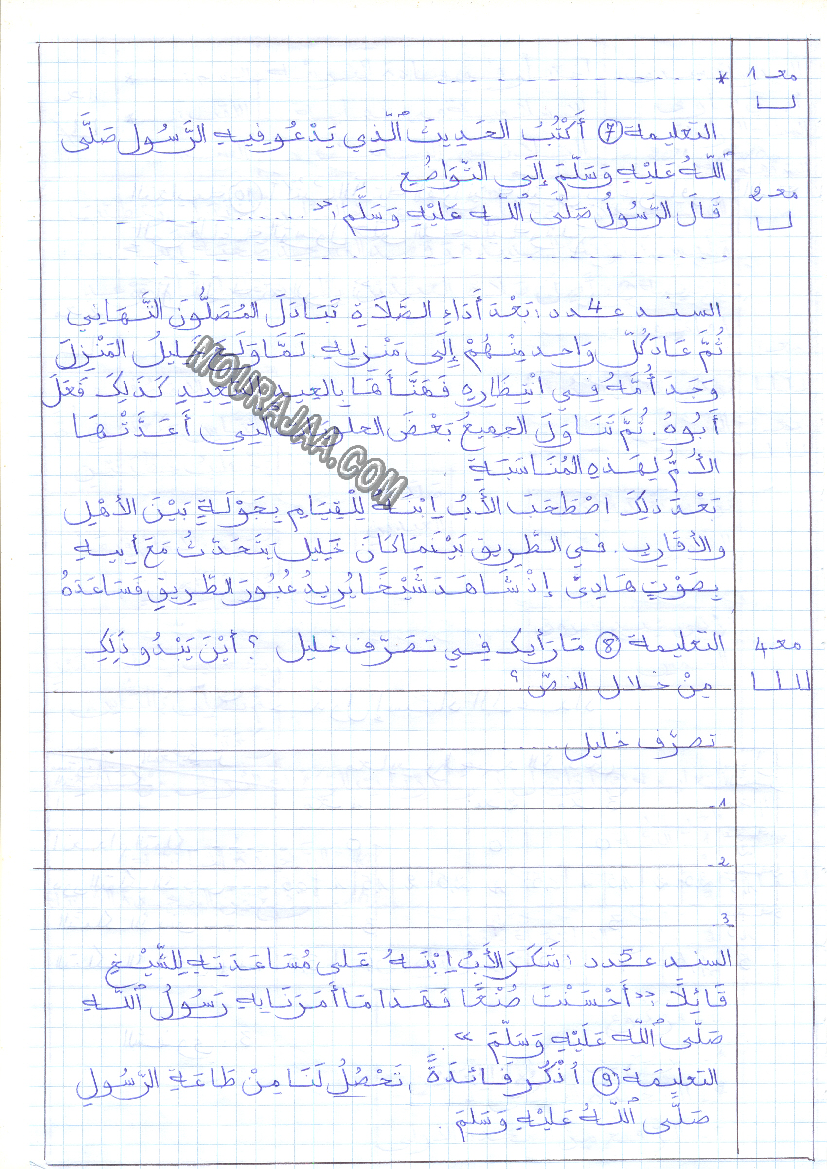 مع 1
* . . . . . . . . . . . . . . . . . . . .
التعليمة 7 أَكْتُبُ الحَدِيثَ ٱلَّذِي يَدْعُو فِيهِ الرَّسُول صَلَّى
ٱللَّهُ عَلَيْهِ وَسَلَّمَ إِلَى التَّوَاضُعِ
مع 2
قَالَ الرَّسُولُ صَلَّى ٱللَّهُ عَلَيْهِ وَسَلَّمَ : « . . . . . . . . . . . .
. . . . . . . . . . . . . . . . . . . .
السند عـ4ـدد : بَعْدَ أَدَاءِ الصَّلَاةِ تَبَادَلَ المُصَلُّونَ التَّهَانِي
ثُمَّ عَادَ كُلّ وَاحد مِنْهُمْ إِلَى مَنْزِلِهِ. لَمَّا وَلَجَ خَلِيلُ المَنْزِلَ
وَجَدَ أُمَّهُ فِي انْتِظَارِهِ فَهَنَّأَهَا بِالعِيدِ السَّعِيدِ كَذَلِكَ فَعَلَ
أَبُوهُ. ثُمَّ تَنَاوَلَ الجميعُ بَعْضَ الحلويات الَّتِي أَعَدَّتْهَا
الأُمُّ لِهَذِهِ المُنَاسَبَةِ
بَعْدَ ذلِكَ اصْطَحَبَ الأَبُ اِبْنَهُ لِلْقِيَامِ بِجَوْلَةٍ بَيْنَ الأَهْلِ
والأَقَارِبِ. فِي الطَّرِيقِ بَيْنَمَا كَانَ خَلِيل يَتَحَدَّثُ مَعَ أَبِيهِ
بِصَوْتٍ هَادِئٍ إِذْ شَاهَدَ شَيْخًا يُرِيدُ عُبُورَ الطَّرِيقِ فَسَاعَدَهُ
مع 4
التعليمة 8 مَا رَأْيك فِي تصَرّف خليل ؟ أَيْنَ يَبْدُو ذَلِكَ
مِنْ خلال النصّ ؟
تصرّف خليل ....
1-
2-
3-
السند عـ5ـدد : شَكَرَ الأَبُ اِبْنَهُ عَلى مُسَاعَدَتِهِ لِلشَّيْخِ
قَائِلًا : « أَحْسَنْتَ صُنْعًا فَهَذا مَا أَمَرَنَا بِهِ رَسُولُ ٱللَّهِ
صَلَّى ٱللَّهُ عَلَيْهِ وَسَلَّمَ »
التعليمَة 9 أَذْكُر فَائدَةً تَحْصُلُ لَنَا مِنْ طَاعَةِ الرَّسُولِ
صَلَّى ٱللَّهُ عَلَيْهِ وَسَلمَ .
MOURAJAA.COM